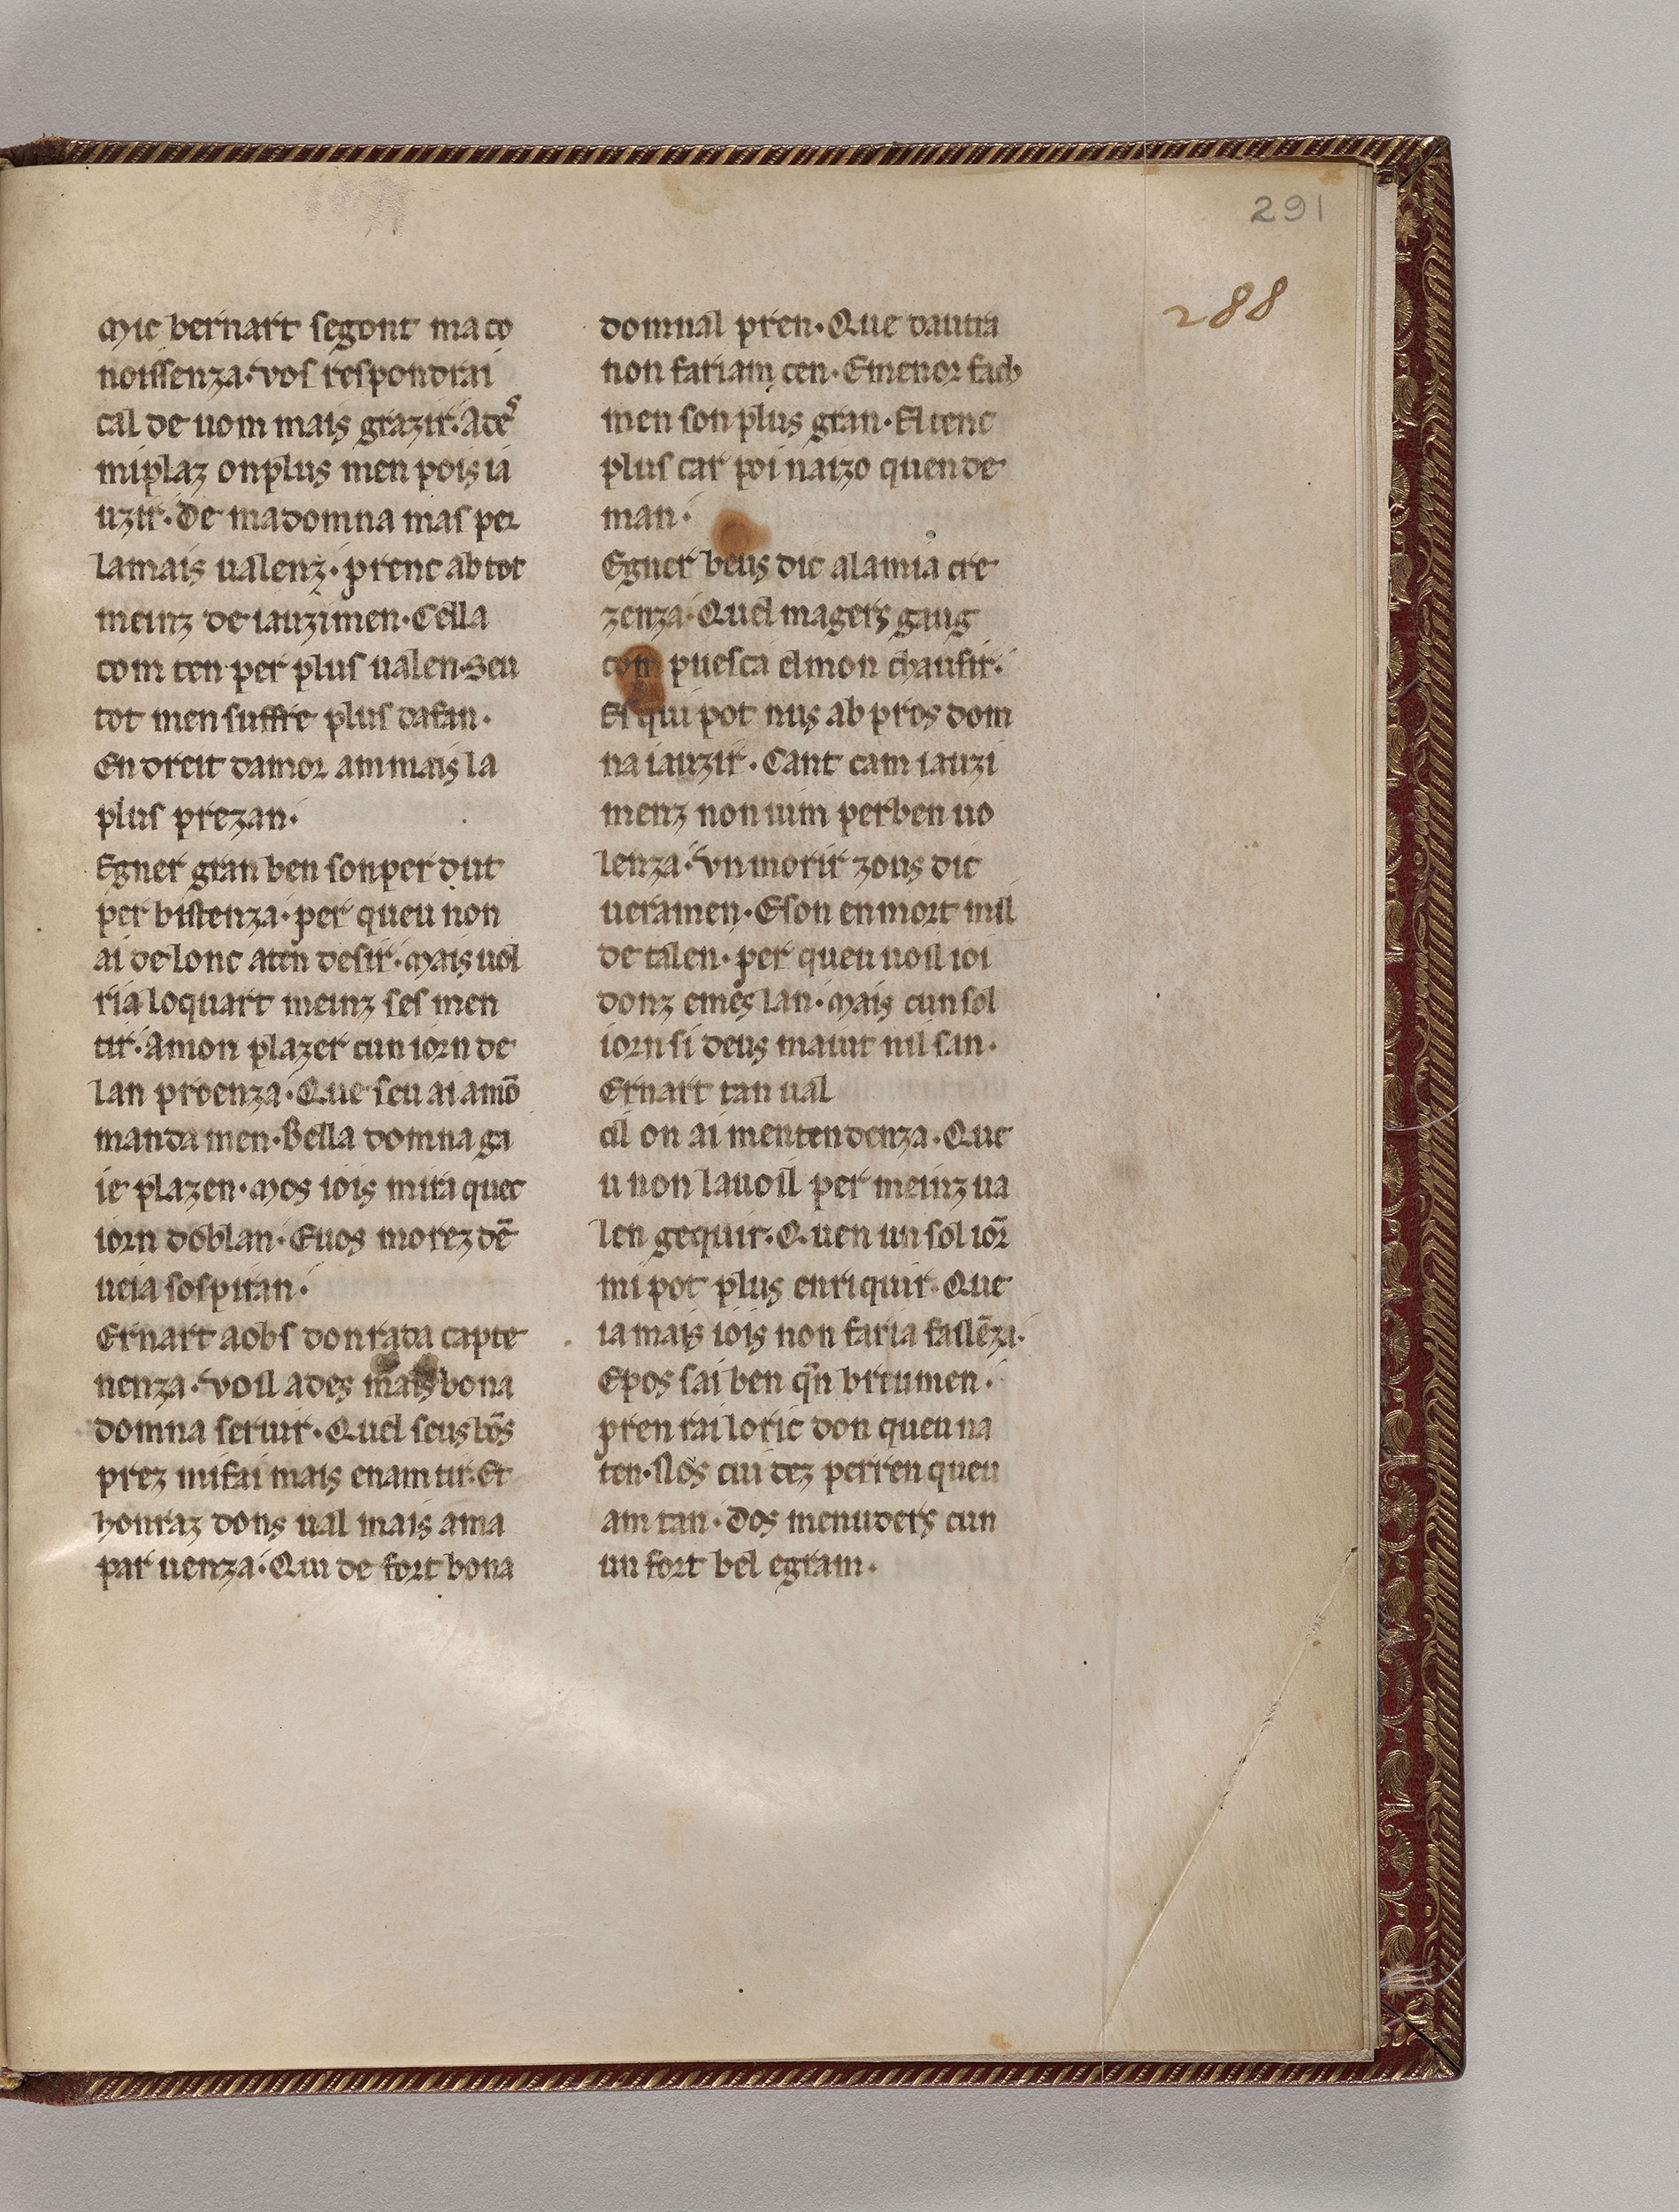 291
288
Mic bernart segont ma co
noissenza. vos respondrai
cal de uom mais grazir. Ates
mi plaz on plus men pois ia
uzir. De ma domna mas per
la mais ualenz. prenc ab tot
meinz de iauzimen. Cella
com ten per plus ualen. Seu
tot men suffre plus dafan.
En dreit damor am mais la
plus prezan.
Egner gran ben son perdut
per bistenza. per queu non
ai de lonc aten desir. Mais uol
ria lo quart meinz ses men
tir. A mon plazer cun iorn de
lan proenza. Que seu ai amō
manda men. Bella domna ga
ie plazen. Mos iois mira quec
iorn doblan. E uos morez dē
ueia sospiran.
Ernart a obs donrada capte
nenza. voil ades mais bona
domna seruir. Quel seus bōs
prez mi fai mais enantir. Et
honraz dons ual mais a ma
paruenza. Qui de fort bona
domnal pren. Que dautra
non fariam cen. E menor fach
men son plus gran. El tenc
plus car poi naizo quen de
man.
Egner beus dic a la mia cre
zenza. Quel magers gaug
com puesca el mon chausir.
Es qui pot nus ab pros dom
na iauzir. Cant cam iauzi
menz non uim per ben uo
lenza. vn morir zous dic
ueramen. E son en mort mil
de talen. per queu uoil ioi
donz e mes lan. Mais cun sol
iorn si deus maiut nil san.
Ernart tan ual
cil on ai mentendenza. Que
u non la uoil per meinz ua
len gequir. Quen un sol ior̄
mi pot plus enriquir. Que
ia mais iois non faria faillēza.
E pos sai ben qn̄ breumen.
penrai lo ric don queu na
ten. Nos cuidez per ren queu
am tan. Dos menuders cun
un fort bel e gram.